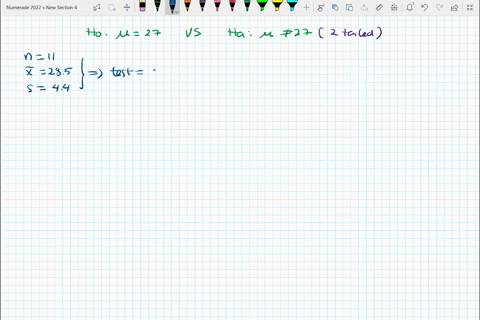 Numerade 2022 • New Section 4
Ho: μ = 27 VS Ha: μ ≠ 27 (2 tailed)
n = 11
x̄ = 28.5 => test =
s = 4.4